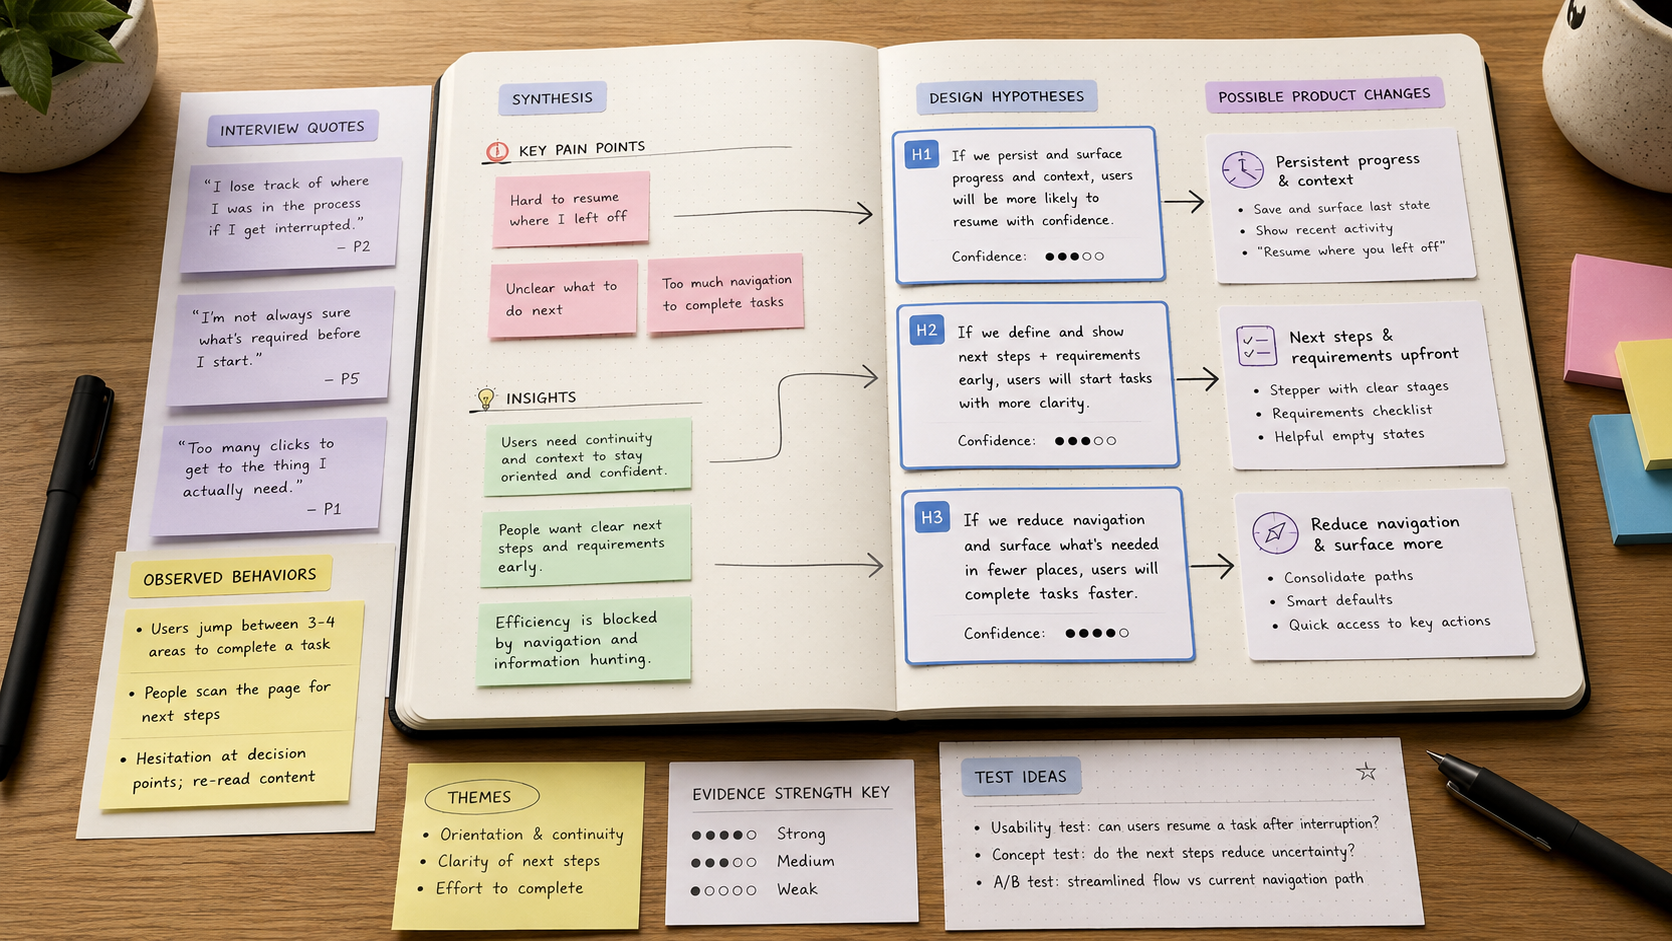 INTERVIEW QUOTES
"I lose track of where
I was in the process
if I get interrupted."
– P2
"I'm not always sure
what's required before
I start."
– P5
"Too many clicks to
get to the thing I
actually need."
– P1
OBSERVED BEHAVIORS
• Users jump between 3-4
areas to complete a task
• People scan the page for
next steps
• Hesitation at decision
points; re-read content
SYNTHESIS
KEY PAIN POINTS
Hard to resume
where I left off
Unclear what to
do next
Too much navigation
to complete tasks
INSIGHTS
Users need continuity
and context to stay
oriented and confident.
People want clear next
steps and requirements
early.
Efficiency is blocked
by navigation and
information hunting.
DESIGN HYPOTHESES
H1
If we persist and surface
progress and context, users
will be more likely to
resume with confidence.
Confidence: ●●●○○
H2
If we define and show
next steps + requirements
early, users will start tasks
with more clarity.
Confidence: ●●●○○
H3
If we reduce navigation
and surface what's needed
in fewer places, users will
complete tasks faster.
Confidence: ●●●●○
POSSIBLE PRODUCT CHANGES
Persistent progress
& context
• Save and surface last state
• Show recent activity
• "Resume where you left off"
Next steps &
requirements upfront
• Stepper with clear stages
• Requirements checklist
• Helpful empty states
Reduce navigation
& surface more
• Consolidate paths
• Smart defaults
• Quick access to key actions
THEMES
• Orientation & continuity
• Clarity of next steps
• Effort to complete
EVIDENCE STRENGTH KEY
●●●●○ Strong
●●●○○ Medium
●○○○○ Weak
TEST IDEAS
• Usability test: can users resume a task after interruption?
• Concept test: do the next steps reduce uncertainty?
• A/B test: streamlined flow vs current navigation path